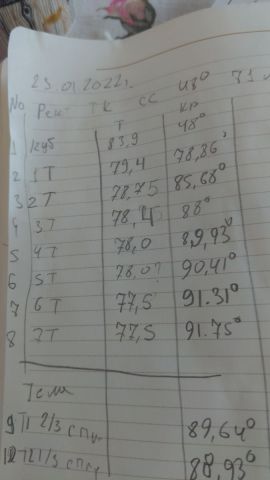 23.01.2022г.
No Рект ТК СС
кр
Т 48°
1 куб 83,9 78,86°
2 1Т 79,4 85,68°
3 2Т 78,75 88°
4 3Т 78,4 89,93°
5 4Т 78,0 90,41°
6 5Т 78,0? 91.31°
7 6Т 77,5 91.75°
8 7Т 77,5
Тела
9 Т1 2/3 89,64°
10 Т2 1/3 88,93°